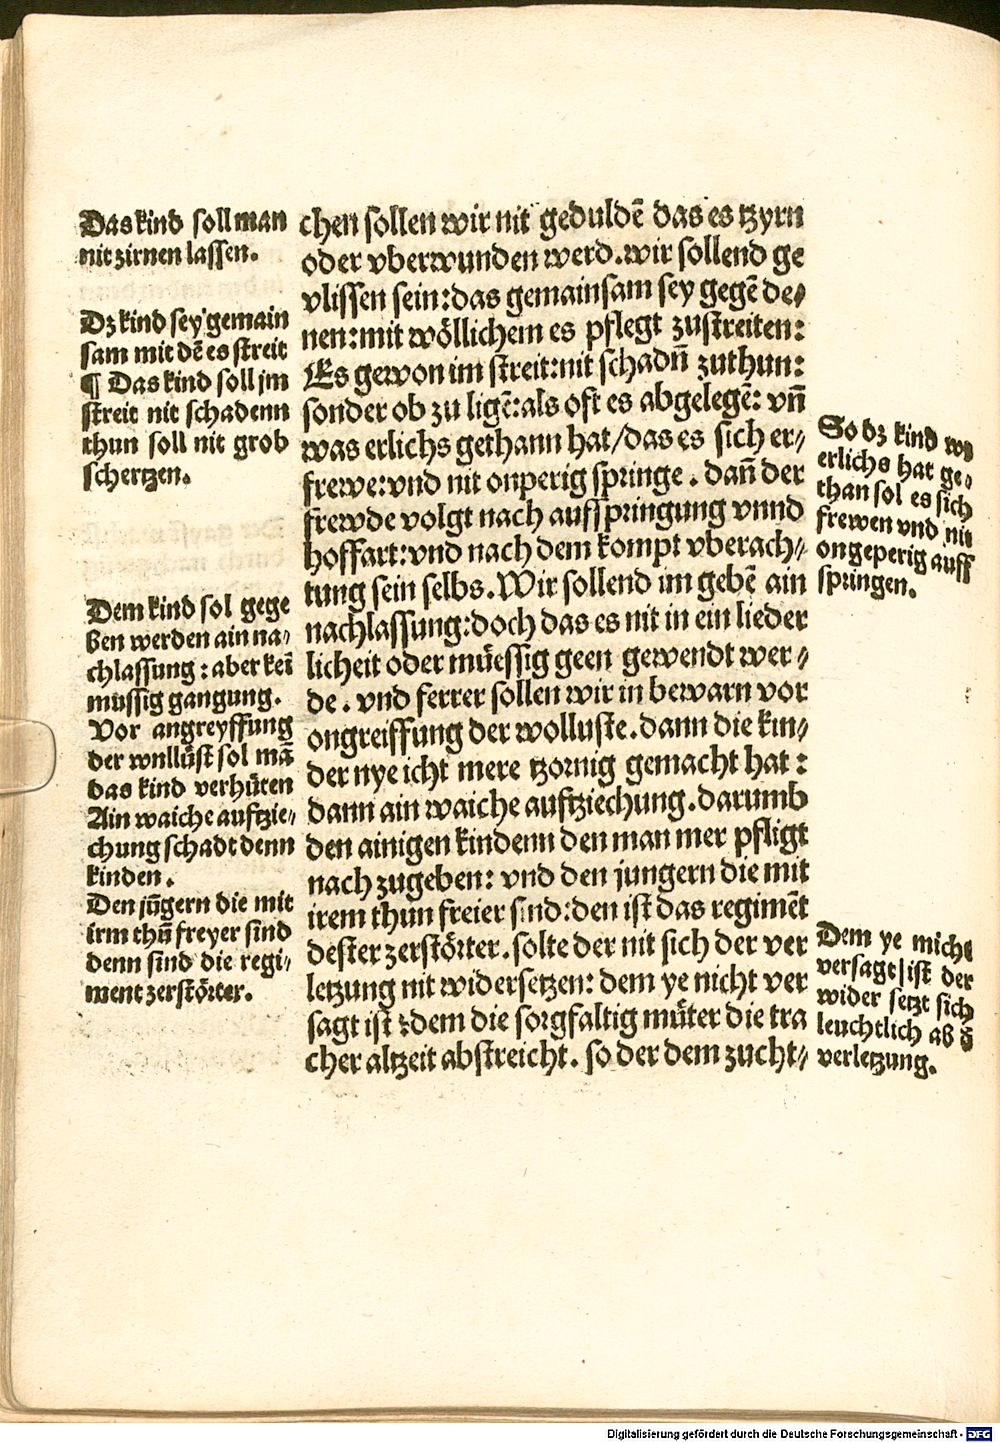 Das kind soll man
nit zirnen lassen.
Dz kind sey gemain
sam mit dē es streit
¶ Das kind soll jm
streit nit schadenn
thun soll nit grob
schertzen.
Dem kind sol gege
ben werden ain na⸗
chlassung : aber kei᷑
mussig gangung.
Vor angreyffung
der wnllu᷑st sol mā
das kind verhu᷑ten
Ain waiche auftzie⸗
chung schadt denn
kinden.
Den ju᷑gern die mit
irm thūn freyer sind
denn sind die regi⸗
ment zerstörter.
chen sollen wir nit geduldē das es tzyrn
oder vberwunden werd. wir sollend ge
vlissen sein: das gemainsam sey gegē de⸗
nen: mit wöllichem es pflegt zustreiten:
Es gewon im streit: nit schadn̄ zuthun:
sonder ob zu ligē: als oft es abgelegē: vn̄
was erlichs gethann hat/das es sich er⸗
frewe: vnd nit onperig springe. dan̄ der
frewde volgt nach aufspringung vnnd
hoffart: vnd nach dem kompt vberach⸗
tung sein selbs. Wir sollend im gebē ain
nachlassung: doch das es nit in ein lieder
licheit oder müessig geen gewendt wer⸗
de. vnd ferrer sollen wir in bewarn vor
ongreiffung der wolluste. dann die kin⸗
der nye icht mere tzornig gemacht hat:
dann ain waiche auftziechung. darumb
den ainigen kindenn den man mer pfligt
nach zugeben: vnd den jungern die mit
irem thun freier sind: den ist das regimēt
dester zerstörter. solte der nit sich der ver
letzung nit widersetzen: dem ye nicht ver
sagt ist: dem die sorgfaltig müter die tra
cher altzeit abstreicht. so der dem zucht⸗
So dz kind
erlichs hat ge⸗
than sol es sich
frewen vnd nit
ongeperig auff
springen.
Dem ye micht
versagt ist der
wider setzt sich
leuchtlich ab d̄
verletzung.
Digitalisierung gefördert durch die Deutsche Forschungsgemeinschaft - DFG